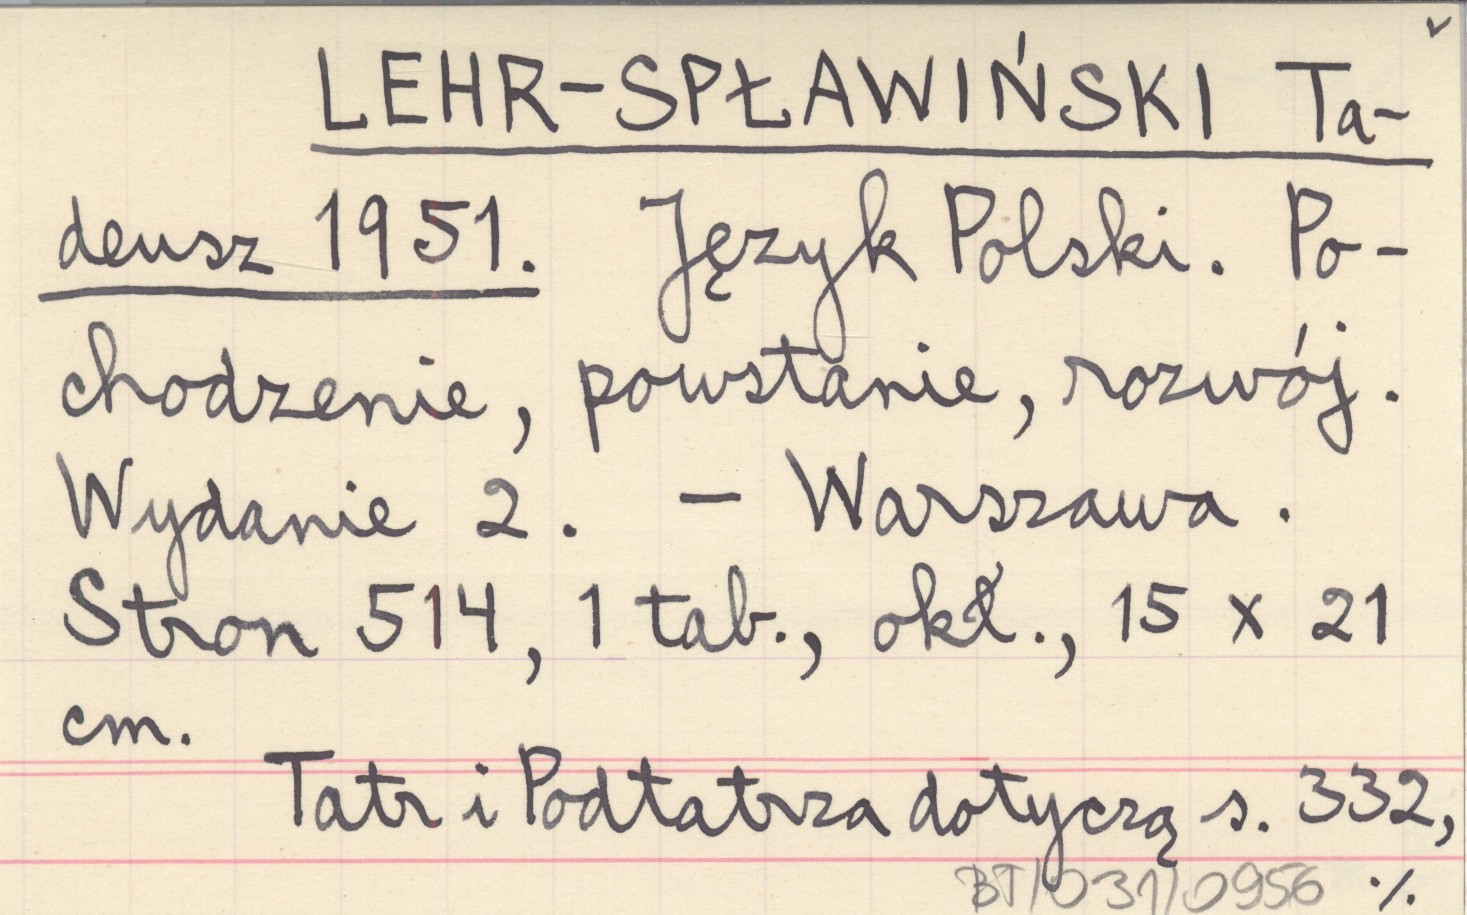 LEHR-SPŁAWIŃSKI Ta-
deusz 1951. Język Polski. Po-
chodzenie, powstanie, rozwój.
Wydanie 2. — Warszawa.
Stron 514, 1 tab., okł., 15 x 21
cm.
Tatr i Podtatrza dotyczą s. 332,
BT/031/0956 ·/.